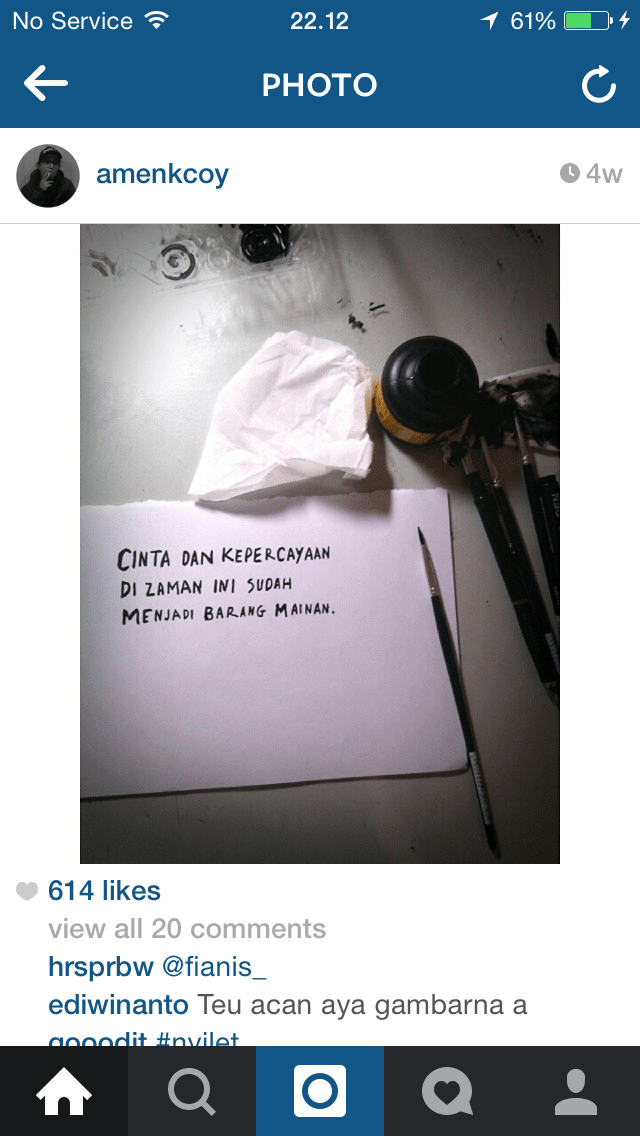 No Service 22.12 61%
PHOTO
amenkcoy 4w
CINTA DAN KEPERCAYAAN
DI ZAMAN INI SUDAH
MENJADI BARANG MAINAN.
614 likes
view all 20 comments
hrsprbw @fianis_
ediwinanto Teu acan aya gambarna a
gooodit #nyilet